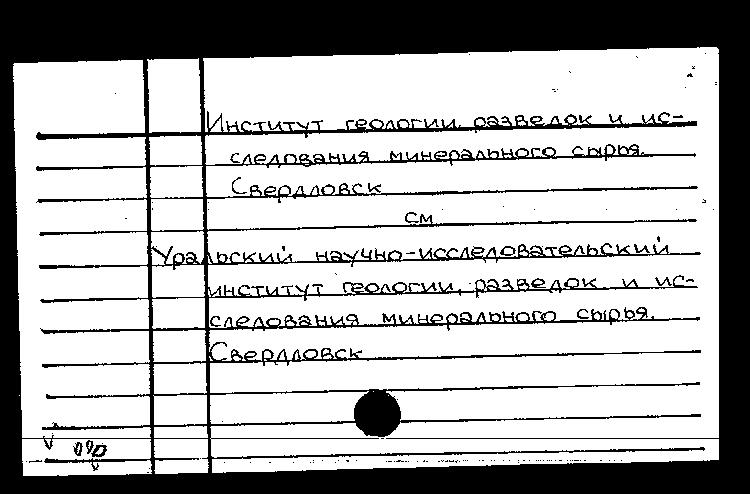 Институт геологии, разведок и ис-
следования минерального сырья.
Свердловск
см
Уральский научно-исследовательский
институт геологии, разведок и ис-
следования минерального сырья.
Свердловск